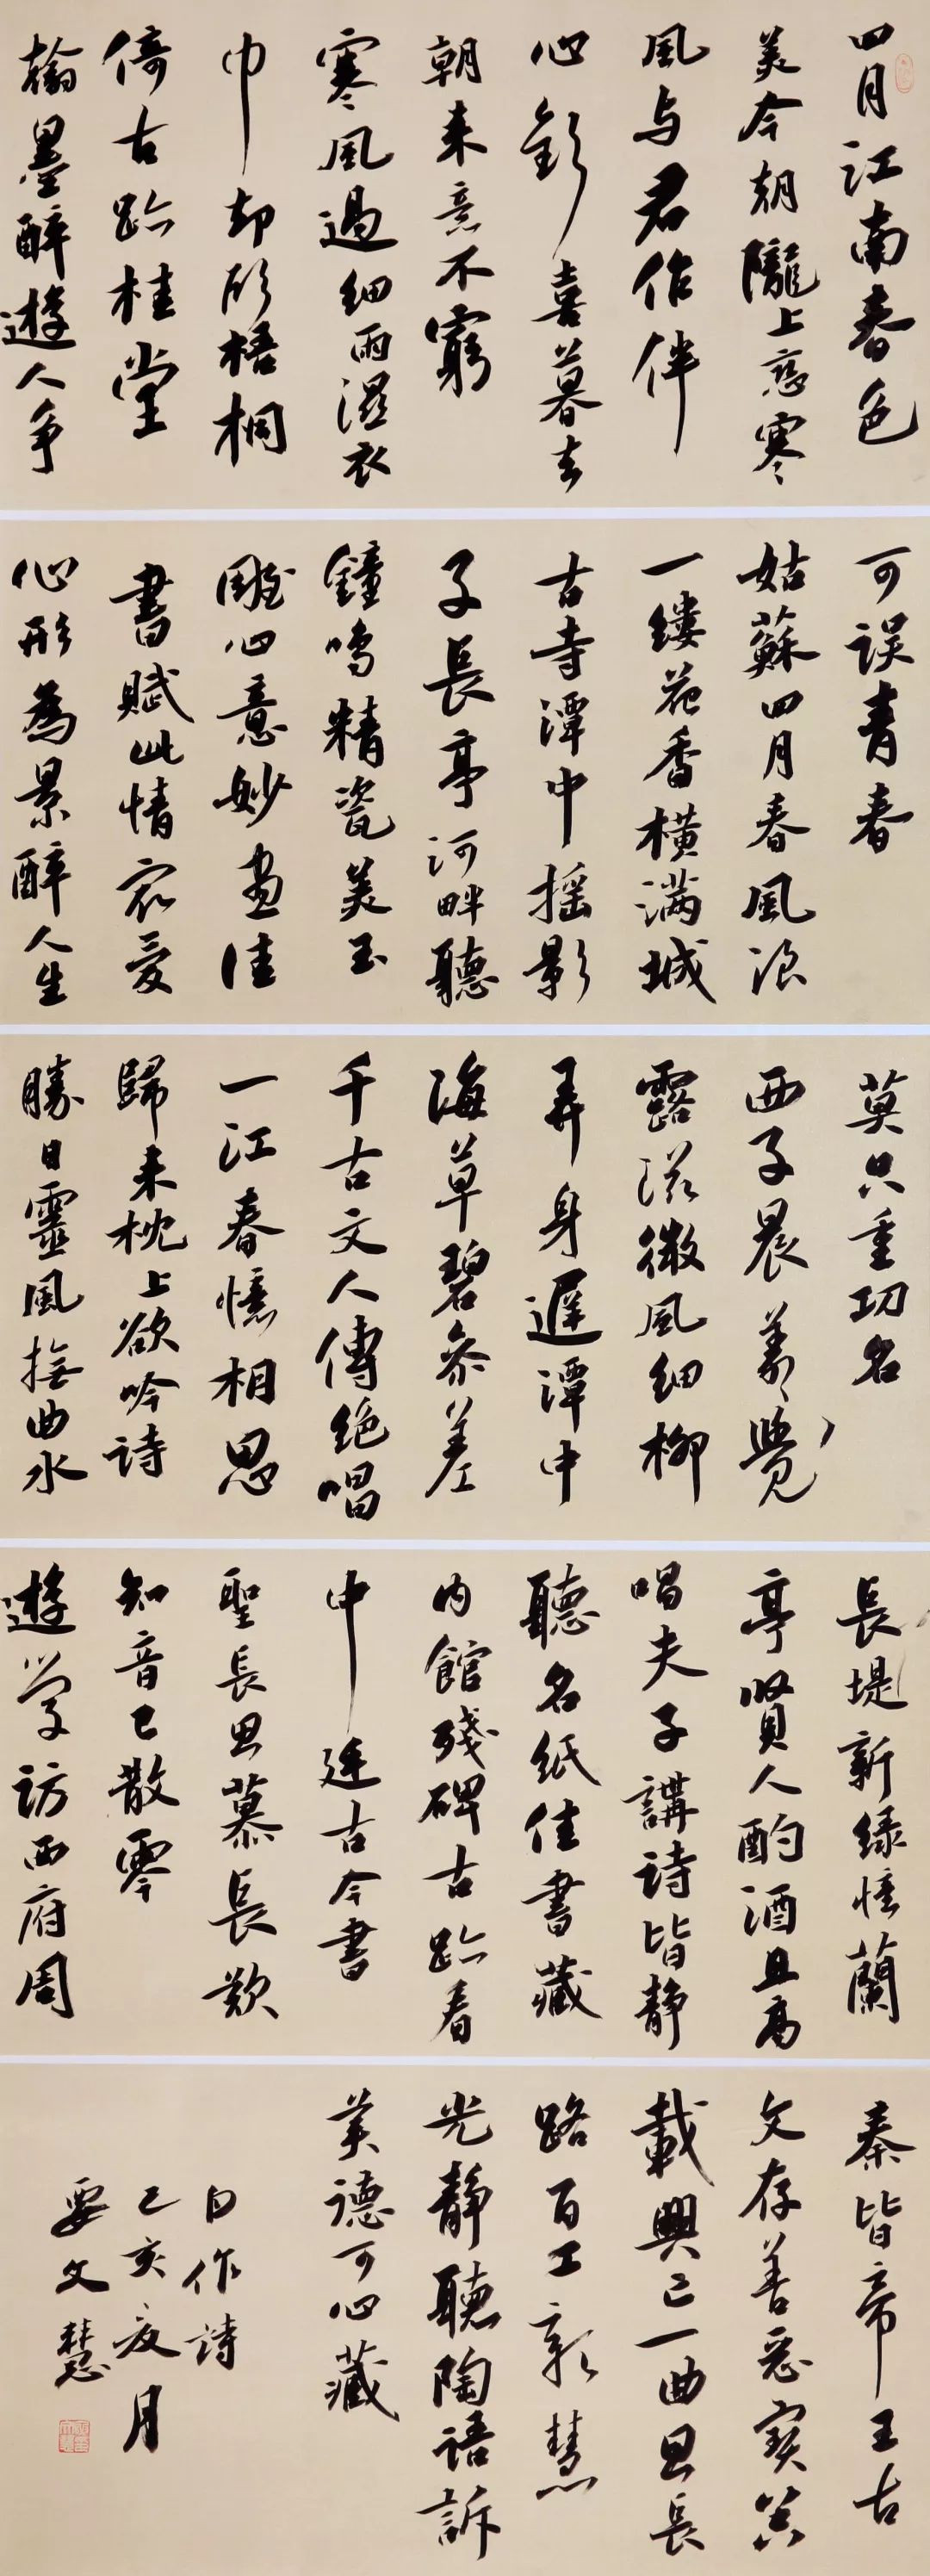 四月江南春色
美今朝隴上惹寒
風与君作伴
心彰喜暮去
朝来意不窮
寒風過細雨濕衣
巾却顧梧桐
倚古跡桂堂
翰墨醉遊人争
可誤青春
姑蘇四月春風浪
一縷花香橫滿城
古寺潭中摇影
子長亭河畔聽
鐘鳴精瓷美玉
雕心意妙畫佳
書賦此情最愛
心形為景醉人生
莫只重功名
西子晨美覺
露滋微風细柳
弄身遲潭中
海草碧参差
千古文人傳绝唱
一江春憶相思
歸来枕上欲吟詩
勝日靈風撫曲水
長堤新绿憶蘭
亭賢人酌酒且高
唱夫子講詩皆静
聽名紙佳書藏
内館殘碑古跡看
中廷古今書
聖長思慕長歎
知音已散零
遊学訪西府周
秦皆帝王古
文存善惡寶其
載興亡一曲思長
路百工彰慧
光静聽陶語訴
美德可心藏
自作詩
己亥夏月
要文慧